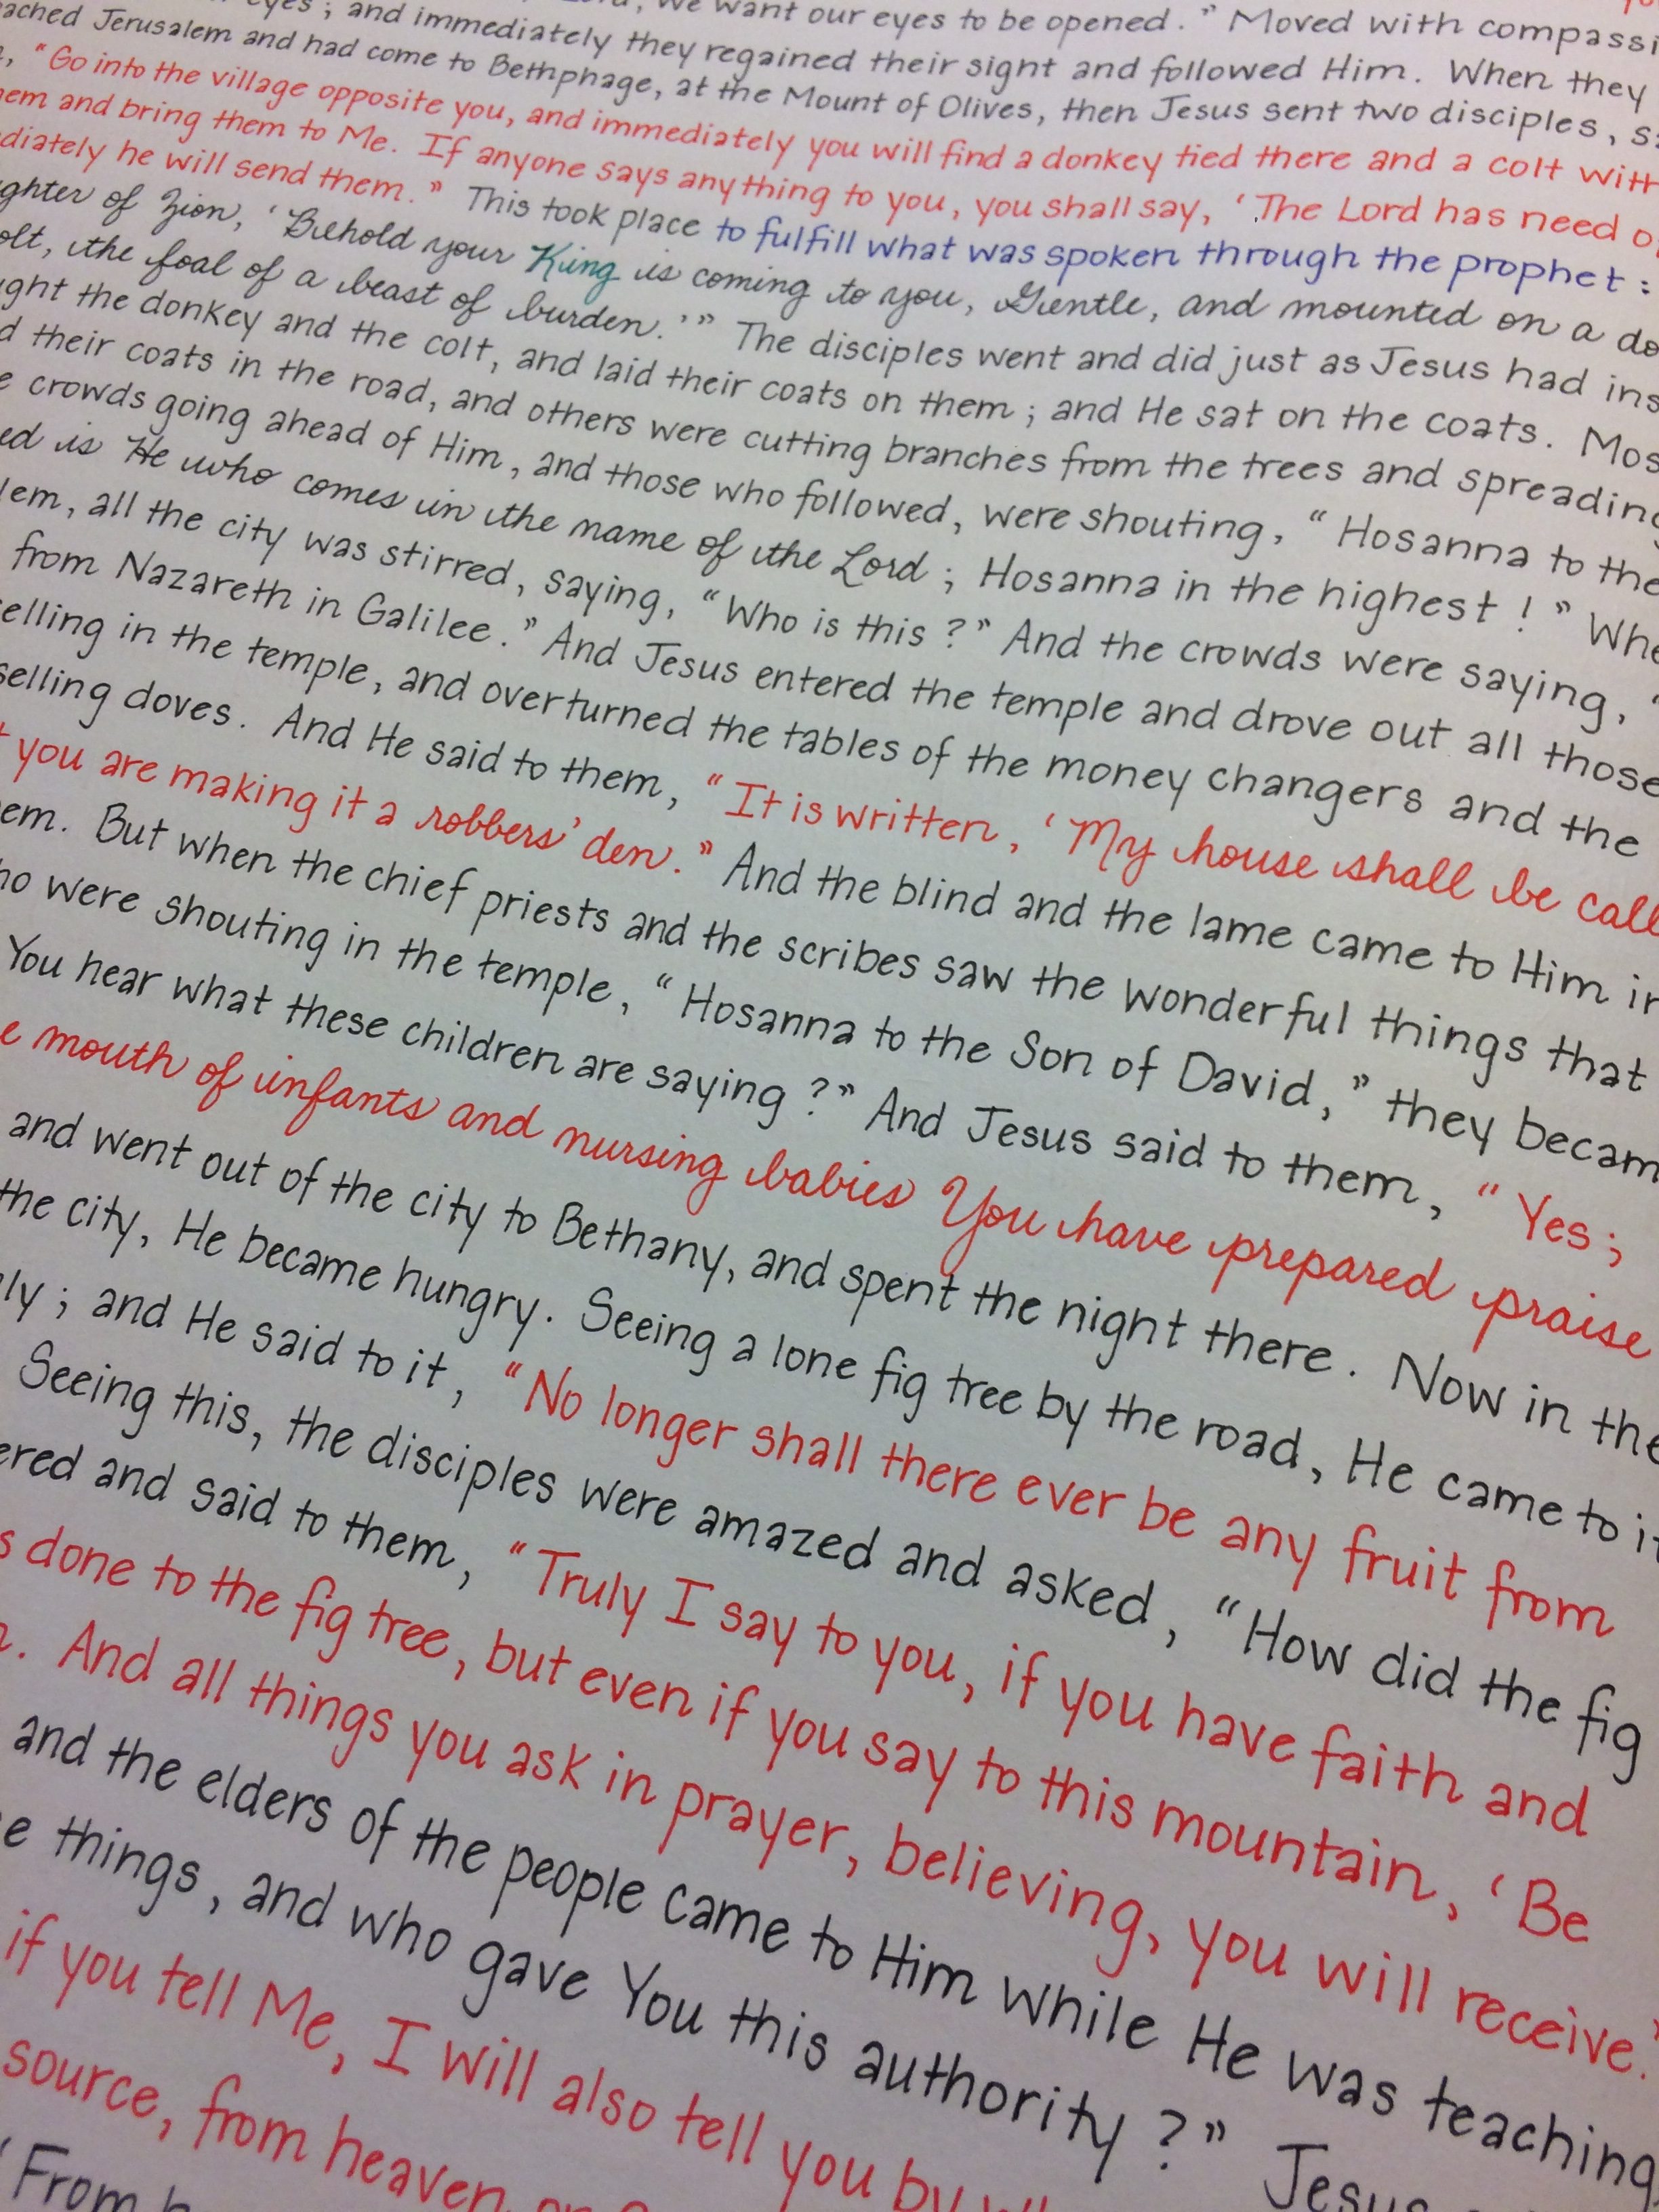 eyes; and immediately they regained their sight and followed Him. When they
ached Jerusalem and had come to Bethphage, at the Mount of Olives, then Jesus sent two disciples, s
"Go into the village opposite you, and immediately you will find a donkey tied there and a colt with
hem and bring them to Me. If anyone says anything to you, you shall say, 'The Lord has need o
diately he will send them." This took place to fulfill what was spoken through the prophet:
ghter of Zion, 'Behold your King is coming to you, Gentle, and mounted on a do
olt, the foal of a beast of burden.'" The disciples went and did just as Jesus had ins
ght the donkey and the colt, and laid their coats on them; and He sat on the coats. Mos
d their coats in the road, and others were cutting branches from the trees and spreading
e crowds going ahead of Him, and those who followed, were shouting, "Hosanna to the
ed is He who comes in the name of the Lord; Hosanna in the highest!" Whe
lem, all the city was stirred, saying, "Who is this?" And the crowds were saying, "
from Nazareth in Galilee." And Jesus entered the temple and drove out all those
elling in the temple, and overturned the tables of the money changers and the
selling doves. And He said to them, "It is written, 'My house shall be call
t you are making it a robbers' den." And the blind and the lame came to Him in
em. But when the chief priests and the scribes saw the wonderful things that
ho were shouting in the temple, "Hosanna to the Son of David," they becam
You hear what these children are saying?" And Jesus said to them, "Yes;
e mouth of infants and nursing babies You have prepared praise
and went out of the city to Bethany, and spent the night there. Now in the
the city, He became hungry. Seeing a lone fig tree by the road, He came to it
ly; and He said to it, "No longer shall there ever be any fruit from
Seeing this, the disciples were amazed and asked, "How did the fig
ered and said to them, "Truly I say to you, if you have faith and
s done to the fig tree, but even if you say to this mountain, 'Be
. And all things you ask in prayer, believing, you will receive."
and the elders of the people came to Him while He was teaching
e things, and who gave You this authority?" Jesus
if you tell Me, I will also tell you by
source, from heaven or
'From